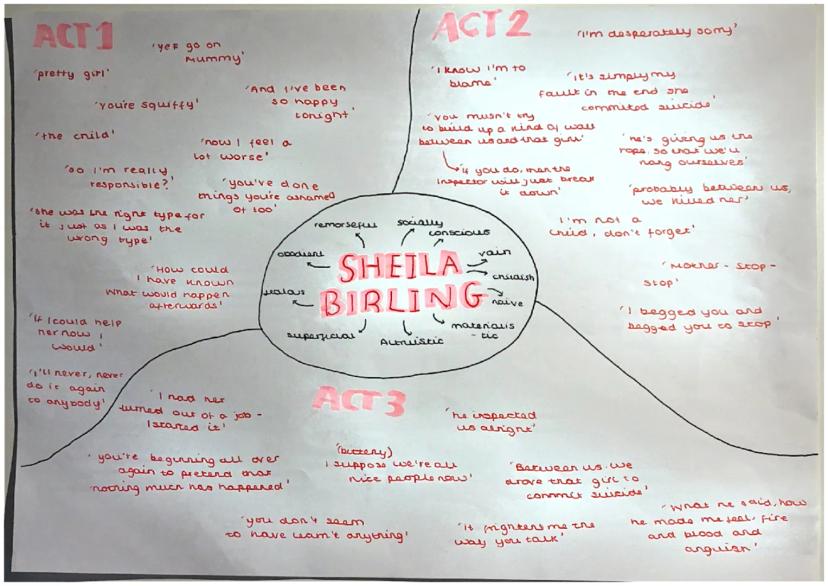 ACT 1
'yes go on
Mummy'
'pretty girl'
'And I've been
so happy
tonight'
'you're squiffy'
'the child'
'now I feel a
lot worse'
'so I'm really
responsible?'
'you've done
things you're ashamed
of too'
'she was the right type for
it just as I was the
wrong type'
'How could
I have known
what would happen
afterwards'
'If I could help
her now I
would'
'I'll never, never
do it again
to anybody'
ACT 2
'I'm desperately sorry'
'I know I'm to
blame'
'It's simply my
fault in the end she
committed suicide'
'you mustn't try
to build up a kind of wall
between us and that girl'
'if you do, then the
inspector will just break
it down'
'he's giving us the
rope, so that we'll
hang ourselves'
'probably between us,
we killed her'
'I'm not a
child, don't forget'
'Mother - stop -
stop'
'I begged you and
begged you to stop'
SHEILA
BIRLING
remorseful
socially
conscious
vain
childish
naive
materialis
-tic
Altruistic
superficial
jealous
obedient
ACT 3
'I had her
turned out of a job -
I started it'
'he inspected
us alright'
'you're beginning all over
again to pretend that
nothing much has happened'
'(bitterly)
I suppose we're all
nice people now'
'Between us we
drove that girl to
commit suicide'
'you don't seem
to have learnt anything'
'It frightens me the
way you talk'
'What he said, how
he made me feel, fire
and blood and
anguish'